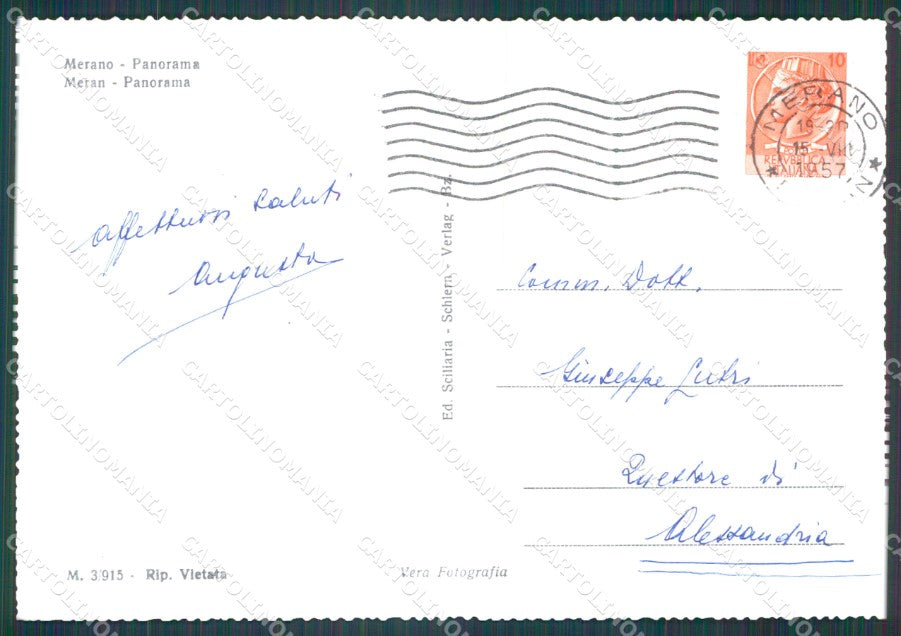 Merano - Panorama
Meran - Panorama
affettuosi saluti
Augusta
Ed. Sciliaria - Schlern - Verlag - Bz.
LIRE 10
REPVBBLICA
ITALIANA
MERANO
19-20
15. VIII
1957
Comm. Dott.
Giuseppe Lutri
Questore di
Alessandria
M. 3915 - Rip. Vietata
Vera Fotografia
CARTOLINOMANIA